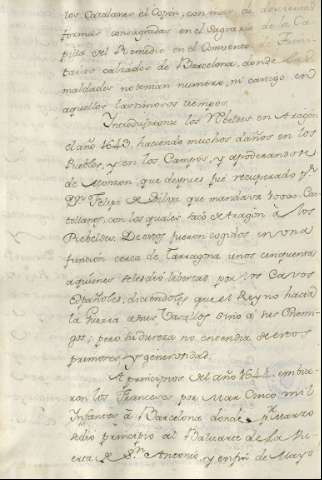 los Catalanes el Copon, con mas de doscientas
formas consagradas en el Sagrario de la Ca-
pilla del Remedio en el Convento de Trini-
tarios calzados de Barcelona, donde las
maldades no tenian numero, ni castigo en
aquellos lastimosos tiempos.
Introduxeronse los Rebeldes en Aragon
el año 1643, haciendo muchos daños en los
Pueblos, y en los Campos, y apoderandose
de Monzon, que despues fué recuperado pr.
Dn. Felipe de Silva que mandava Tropas Cas-
tellanas, con los quales sacó de Aragon a los
Rebeldes. De estos fueron cogidos en una
funcion cerca de Tarragona unos cinquenta
a quienes se les dió libertad por los Cavos
Españoles, diciendoles que el Rey no hacia
la Guerra a sus Vasallos sino a sus Enemi-
gos; pero su dureza no entendia de estos
primores y generosidad.
A principios del año 1644. embia-
ron los Franceses por Mar Cinco mil
Infantes á Barcelona donde pr. Marzo
se dio principio al Baluarte de la Pu-
erta de Sn. Antonio, y en fin de Mayo